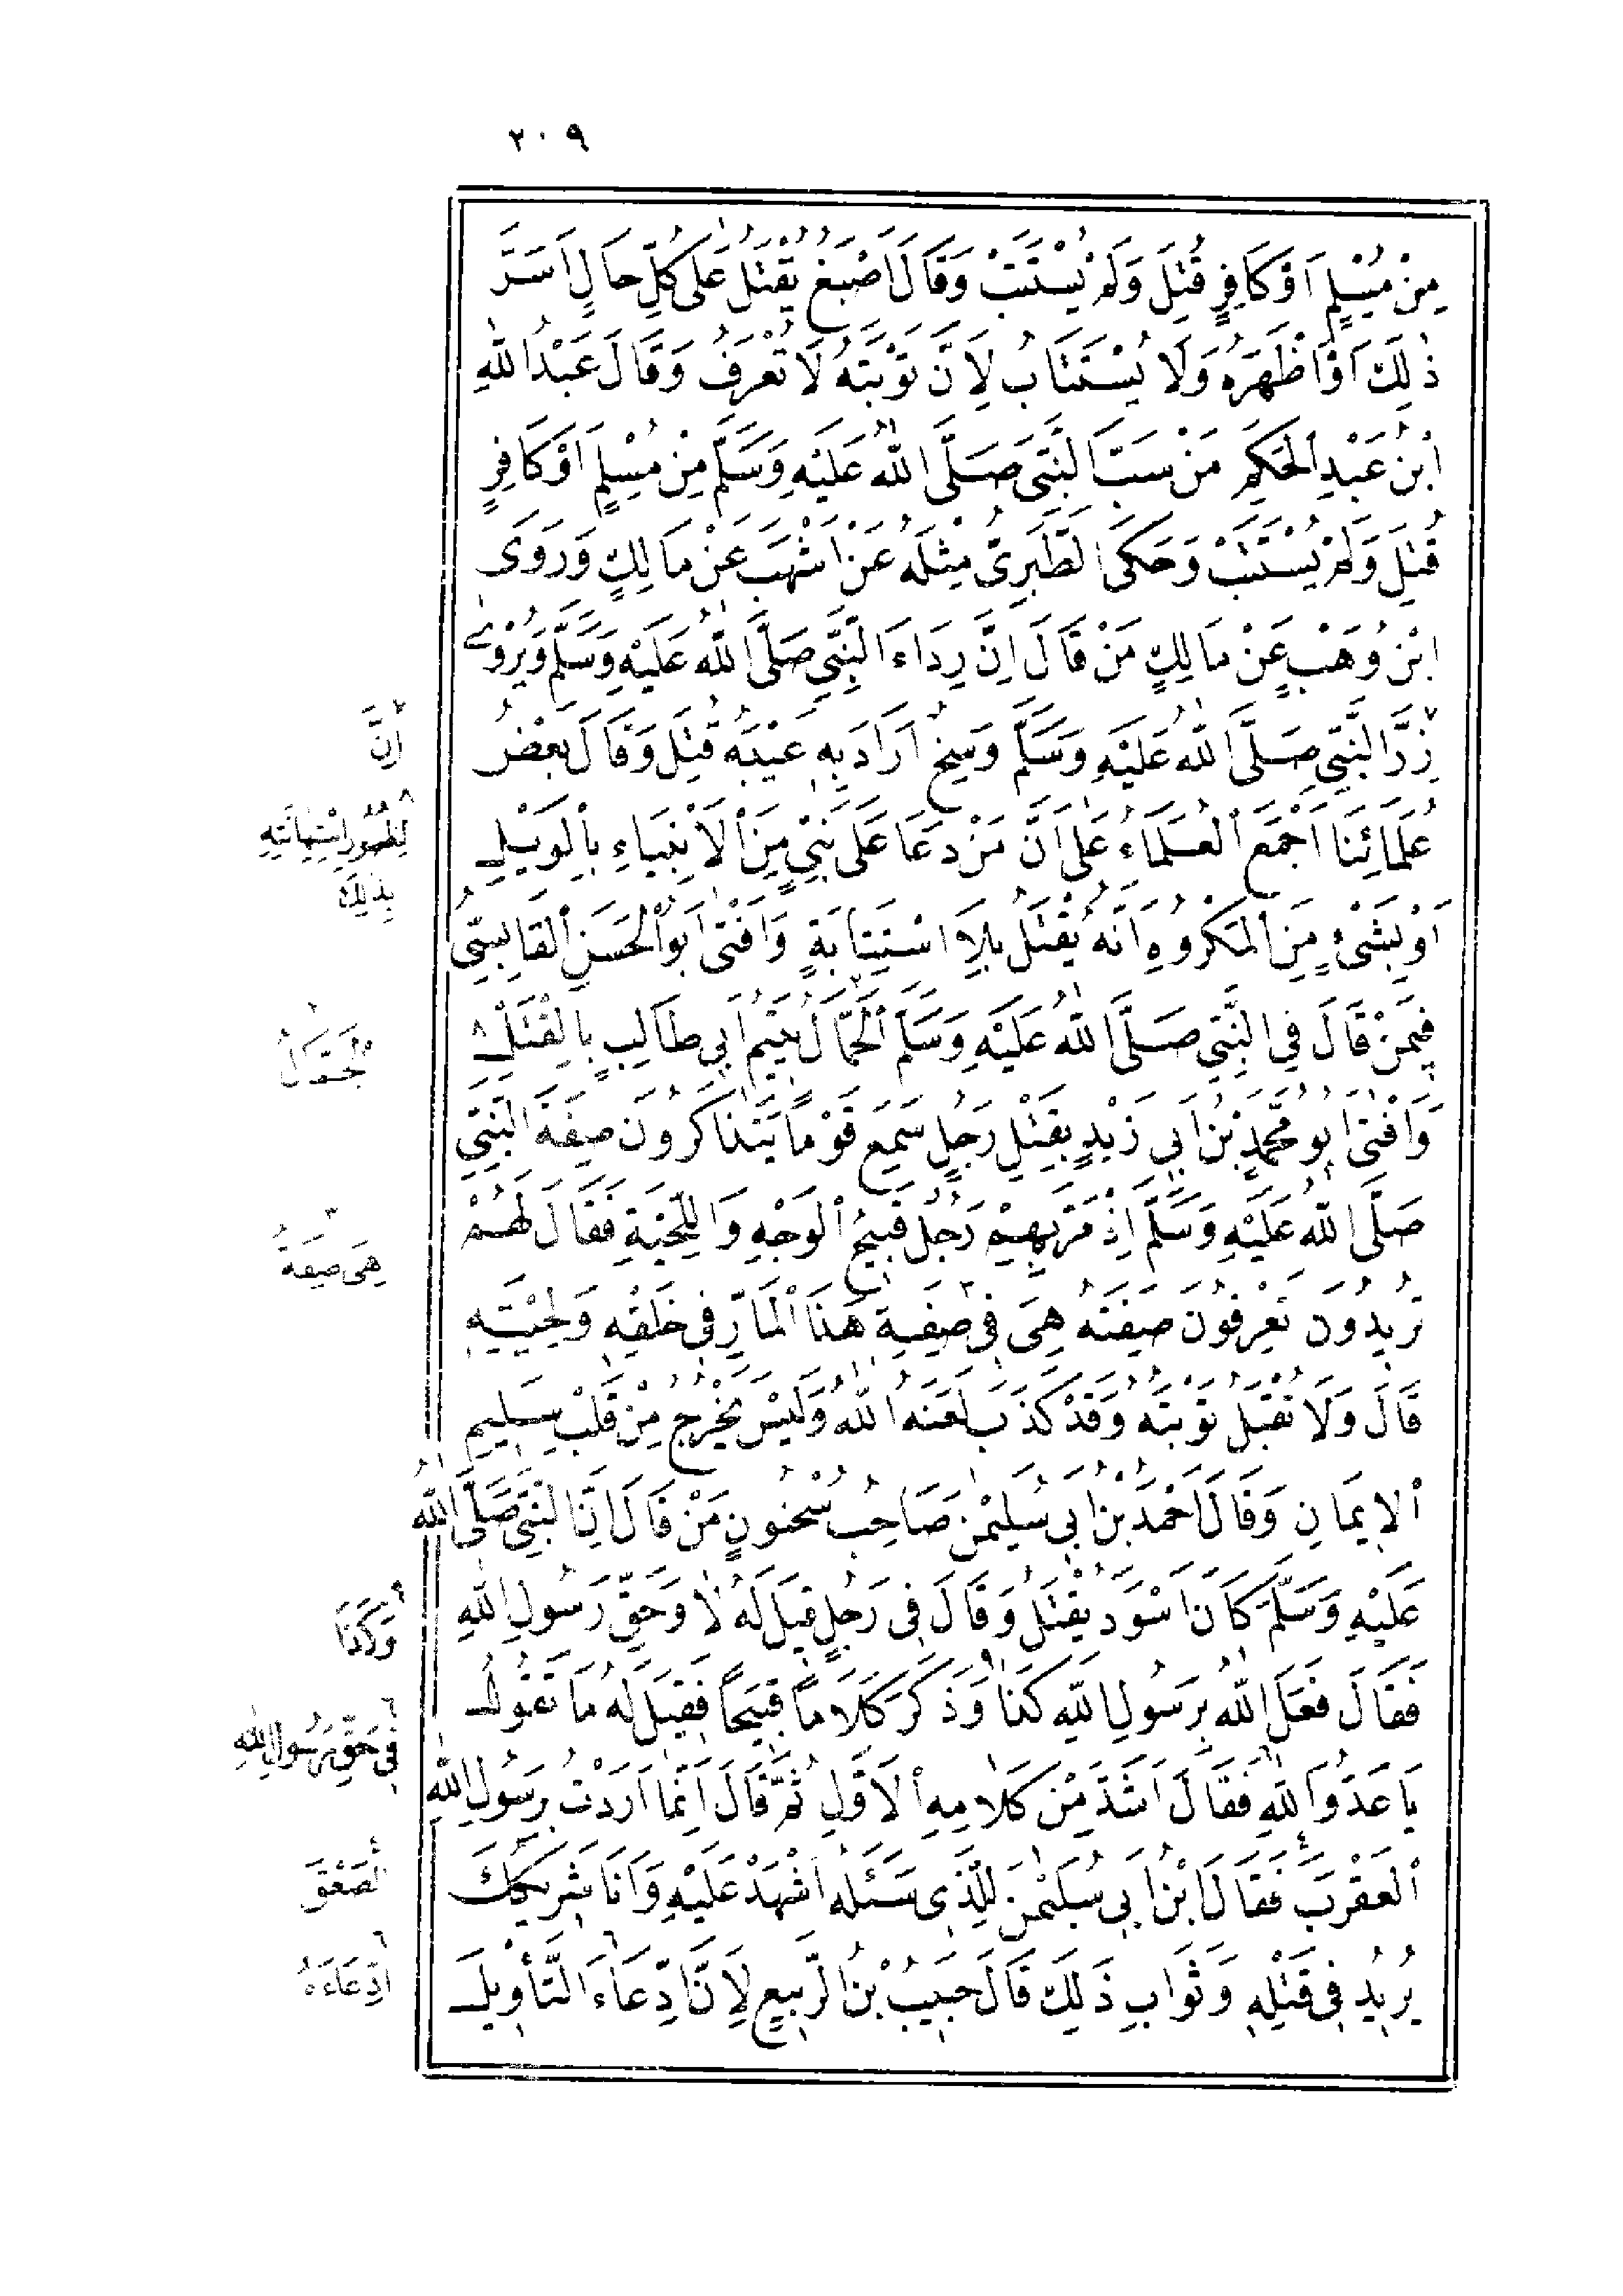 ٢٠٩
مِنْ مُسْلِمٍ اَوْ كَافِرٍ قُتِلَ وَلَمْ يُسْتَتَبْ وَقَالَ اَصْبَغُ يُقْتَلُ عَلٰى كُلِّ حَالٍ اَسَرَّ
ذٰلِكَ اَوْ اَظْهَرَهُ وَلَا يُسْتَتَابُ لِاَنَّ تَوْبَتَهُ لَا تُعْرَفُ وَقَالَ عَبْدُ اللّٰهِ
ابْنُ عَبْدِ الْحَكَمِ مَنْ سَبَّ النَّبِيَّ صَلَّى اللّٰهُ عَلَيْهِ وَسَلَّمَ مِنْ مُسْلِمٍ اَوْ كَافِرٍ
قُتِلَ وَلَمْ يُسْتَتَبْ وَحَكَى الطَّبَرِيُّ مِثْلَهُ عَنْ اَشْهَبَ عَنْ مَالِكٍ وَرَوَى
ابْنُ وَهْبٍ عَنْ مَالِكٍ مَنْ قَالَ اِنَّ رِدَاءَ النَّبِيِّ صَلَّى اللّٰهُ عَلَيْهِ وَسَلَّمَ وَيُرْوٰى
زِرَّ النَّبِيِّ صَلَّى اللّٰهُ عَلَيْهِ وَسَلَّمَ وَسِخٌ اَرَادَ بِهِ عَيْبَهُ قُتِلَ وَقَالَ بَعْضُ
عُلَمَائِنَا اَجْمَعَ الْعُلَمَاءُ عَلٰى اَنَّ مَنْ دَعَا عَلٰى نَبِيٍّ مِنَ الْاَنْبِيَاءِ بِالْوَيْلِ
اَوْ بِشَيْءٍ مِنَ الْمَكْرُوهِ اَنَّهُ يُقْتَلُ بِلَا اسْتِتَابَةٍ وَاَفْتٰى اَبُو الْحَسَنِ الْقَابِسِيُّ
فِيمَنْ قَالَ فِي النَّبِيِّ صَلَّى اللّٰهُ عَلَيْهِ وَسَلَّمَ الْحَمَّالُ يَتِيمُ اَبِي طَالِبٍ بِالْقَتْلِ ٨
وَاَفْتٰى اَبُو مُحَمَّدِ بْنُ اَبِي زَيْدٍ بِقَتْلِ رَجُلٍ سَمِعَ قَوْمًا يَتَذَاكَرُونَ صِفَةَ النَّبِيِّ
صَلَّى اللّٰهُ عَلَيْهِ وَسَلَّمَ اِذْ مَرَّ بِهِمْ رَجُلٌ قَبِيحُ الْوَجْهِ وَاللِّحْيَةِ فَقَالَ لَهُمْ
تُرِيدُونَ تَعْرِفُونَ صِفَتَهُ هِيَ فِي صِفَةِ هٰذَا الْمَارِّ فِي خَلْقِهِ وَلِحْيَتِهِ
قَالَ وَلَا تُقْبَلُ تَوْبَتُهُ وَقَدْ كَذَبَ لَعَنَهُ اللّٰهُ وَلَيْسَ يَخْرُجُ مِنْ قَلْبٍ سَلِيمِ
الْاِيمَانِ وَقَالَ اَحْمَدُ بْنُ اَبِي سُلَيْمٰنَ صَاحِبُ سُحْنُونٍ مَنْ قَالَ اِنَّ النَّبِيَّ صَلَّى اللّٰهُ
عَلَيْهِ وَسَلَّمَ كَانَ اَسْوَدَ يُقْتَلُ وَقَالَ فِي رَجُلٍ قِيلَ لَهُ لَا وَحَقِّ رَسُولِ اللّٰهِ
فَقَالَ فَعَلَ اللّٰهُ بِرَسُولِ اللّٰهِ كَذَا وَذَكَرَ كَلَامًا قَبِيحًا فَقِيلَ لَهُ مَا تَقُولُ
يَا عَدُوَّ اللّٰهِ فَقَالَ اَشَدَّ مِنْ كَلَامِهِ الْاَوَّلِ ثُمَّ قَالَ اِنَّمَا اَرَدْتُ بِرَسُولِ اللّٰهِ
الْعَقْرَبَ فَقَالَ ابْنُ اَبِي سُلَيْمٰنَ لِلَّذِي سَئَلَهُ اشْهَدْ عَلَيْهِ وَاَنَا شَرِيكُكَ
يُرِيدُ فِي قَتْلِهِ وَثَوَابِ ذٰلِكَ قَالَ حَبِيبُ بْنُ الرَّبِيعِ لِاَنَّ ادِّعَاءَ التَّأْوِيلِ
٧
اِنَّ
٨
لِظُهُورِ اسْتِهَانَتِهِ
بِذٰلِكَ
الْجَمَّالُ
٣
هِيَ صِفَةُ
٩
وَكَذَا
٦
فِي حَقِّ رَسُولِ اللّٰهِ
٤
الصَّعْقَ
٦
ادِّعَاءَهُ